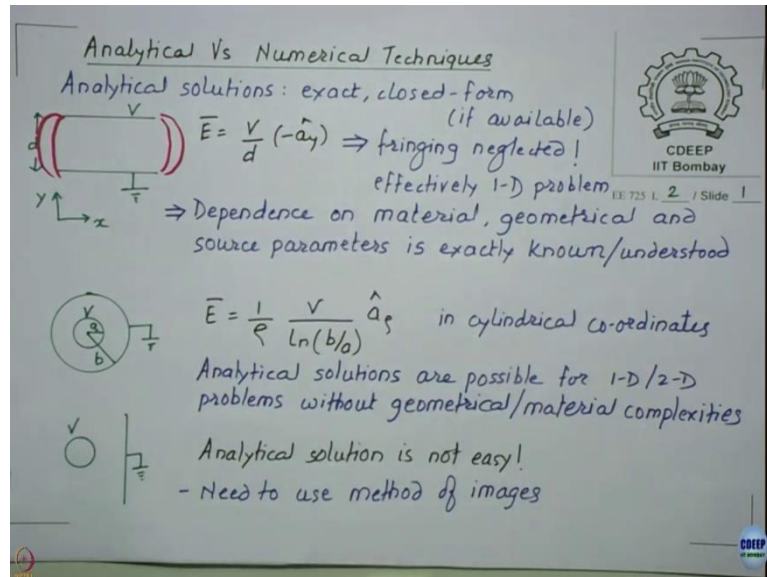 Analytical Vs Numerical Techniques
Analytical solutions: exact, closed-form
(if available)
V
d
E̅ = V/d (-â_y) ⇒ fringing neglected!
effectively 1-D problem
Y
x
CDEEP
IIT Bombay
EE 725 L 2 / Slide 1
⇒ Dependence on material, geometrical and
source parameters is exactly known/understood
V
a
b
E̅ = 1/ρ V/ln(b/a) â_ρ in cylindrical co-ordinates
Analytical solutions are possible for 1-D/2-D
problems without geometrical/material complexities
V
Analytical solution is not easy!
- Need to use method of images
CDEEP
IIT BOMBAY